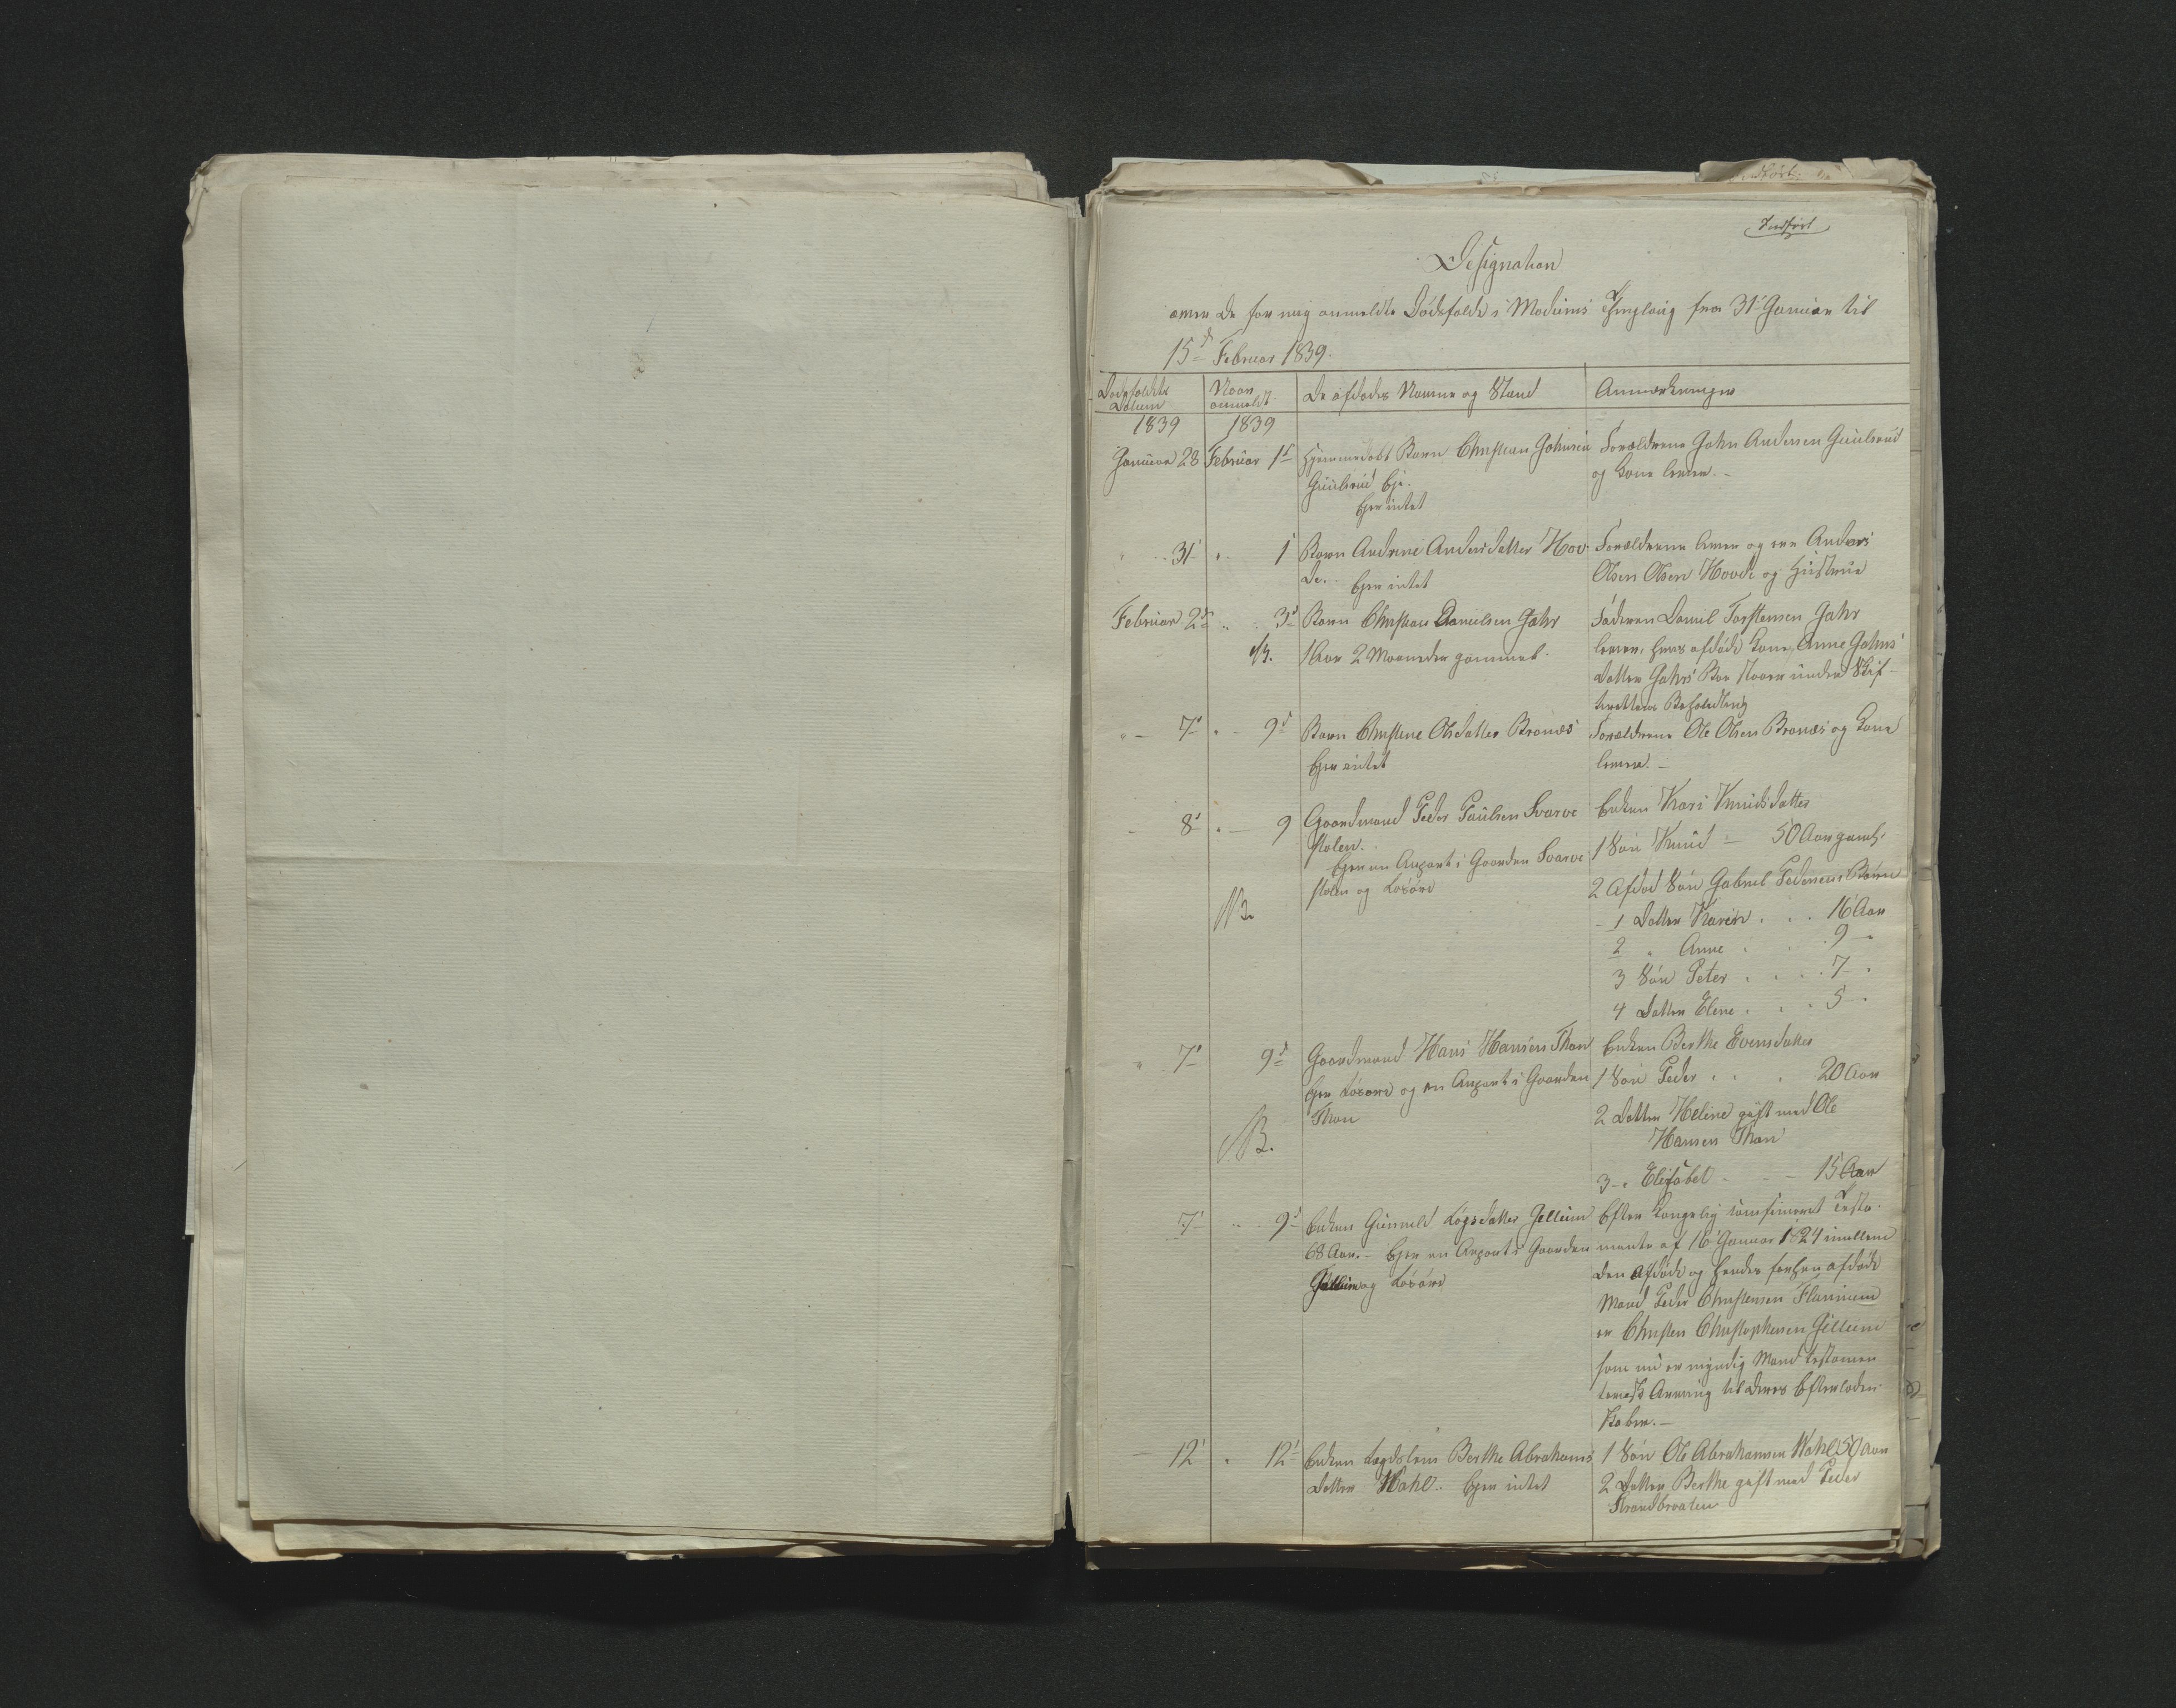 Indført
Designation
over de for mig anmeldte Dödsfald i Modums Thinglaug fra 31 Januar til
15d Februar 1839.
Dødsfaldets Datum
Naar anmeldt
De afdødes Navne og Stand
Anmærkninger
1839
1839
Januar 28
Februar 1st
Hjemmedøbt Barn Christian Johnsen
Guulsrud Eje.
Ejer intet
Forældrene John Andersen Guulsrud
og Kone lever. -
" - 31
" 1
Barn Andrine Andersdatter Hov-
de. Ejer intet
Forældrene Anders
Olsen Olsen Hovde og Hustrue
Februar 2d
" 3d
NB.
Barn Christian Danielsen Jahr
1 Aar 2 Maaneder gammel.
Faderen Daniel Torstensen Jahr
lever, hans afdöde Kone, Anne Johns
datter Jahrs Boe staaer under Skif-
terettens Behandling
" - 7d
" - 9d
Barn Christine Olsdatter Bronæs
Ejer intet
Forældrene Ole Olsen Bronæs og Kone
lever. -
- 8d
" - 9
NB
Gaardmand Peder Paulsen Svarve
stolen.
Ejer en Anpart i Gaarden Svarve
stolen og Lösöre
Enken Kari Knudsdatter
1 Sön Knud - 50 Aar gaml.
2 Afdöd Sön Gabriel Pedersens Börn
- 1 Datter Karen . . . 16 Aar
2 " Anne . . . 9 -
3 Sön Peter . . . 7 -
4 Datter Elene . . . 5 -
" 7d
9d
NB.
Gaardmand Hans Hansen Thon
Ejer Lösöre og en Anpart i Gaarden
Thon
Enken Berthe Evensdatter
1 Sön Peder . . . 20 Aar
2 Datter Heline gift med Ole
Hansen Thon
3 - " Elisabet - - - 15 Aar
7d
" 9d
Enken Gunnild datter Gellum
68 Aar. - Ejer en Anpart i Gaarden
Gellum og Lösöre
Efter Kongelig confirmeret Testa-
mente af 16 Januar 1824 imellem
den Afdöde og hendes forhen afdöde
Mand Peder Christensen
er Christen Christophersen Gellum
som nu er myndig Mand testamen
terisk Arving til deres Efterladen-
skaber. -
- 12t
" 12t
Enken Berthe Abrahams
datter Wahl.. Ejer intet
1 Sön Ole Abrahamsen Wahl 50 Aar
2 Datter Berthe gift med Peder
Strandbraaten